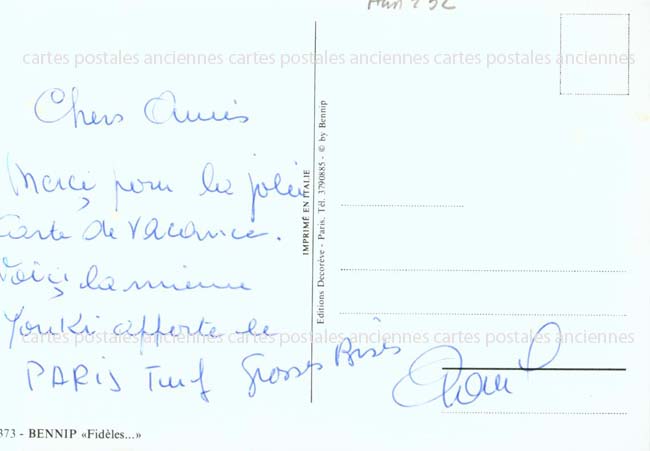 cartes postales anciennes cartes postales anciennes cartes postales anciennes
Chers Amis
Merci pour la jolie
Carte de Vacance.
Voici la mienne
Youki apporte le
PARIS Turf Grosses Bises
cartes postales anciennes cartes postales anciennes cartes postales anciennes
IMPRIMÉ EN ITALIE
Editions Decorève - Paris, Tél. 3790885 - © by Bennip
373 - BENNIP «Fidèles...»